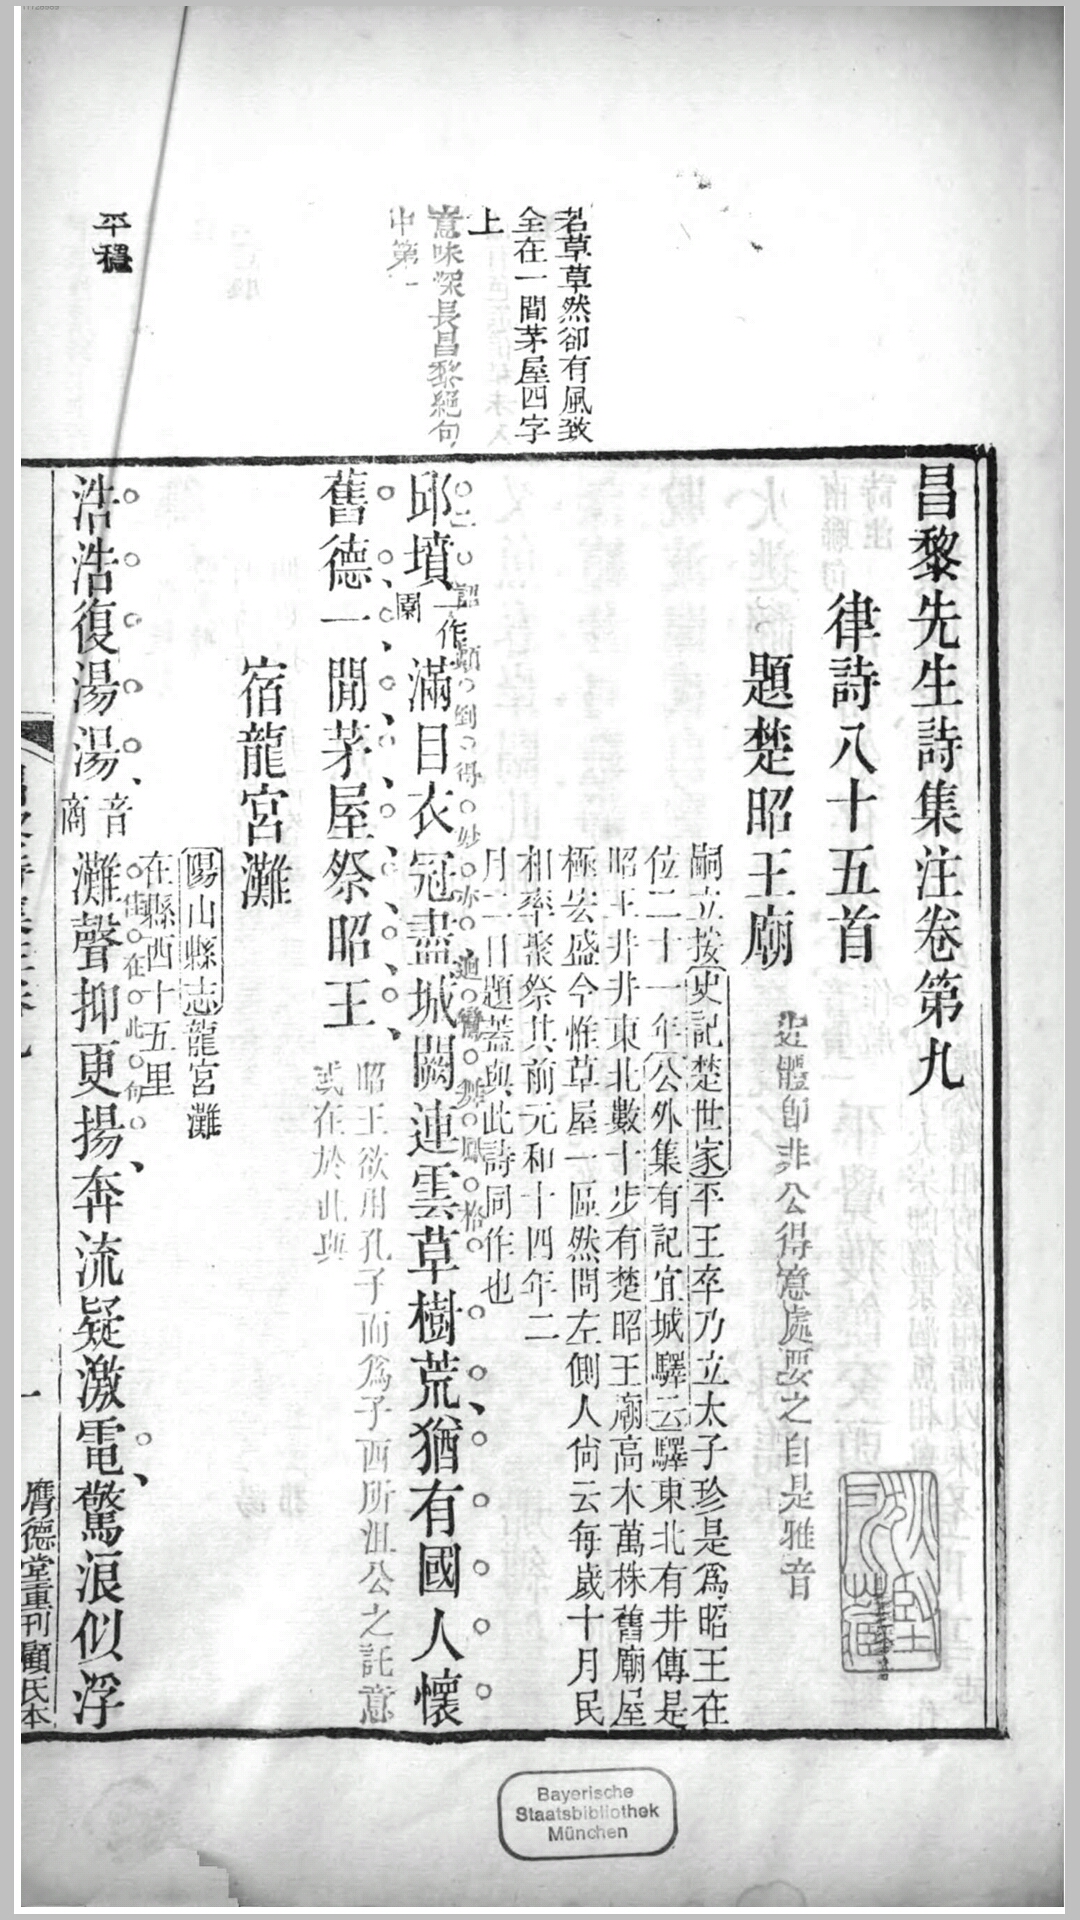 昌黎先生詩集注卷第九
律詩八十五首
近體即非公得意處要之自是雅音
題楚昭王廟
嗣立按史記楚世家平王卒乃立太子珍是爲昭王在
位二十一年公外集有記宜城驛云驛東北有井傳是
昭王井井東北數十步有楚昭王廟高木萬株舊廟屋
極宏盛今惟草屋一區然問左側人尙云每歲十月民
相率聚祭其前元和十四年二
月二日題蓋與此詩同作也
若草草然卻有風致
全在一間茅屋四字
上
意味深長昌黎絕句
中第一
邱墳一作園滿目衣冠盡城闕連雲草樹荒猶有國人懷
舊德一間茅屋祭昭王
昭王欲用孔子而爲子西所沮公之託意
或在於此與
宿龍宮灘
陽山縣志龍宮灘
在縣西十五里
平穩
浩浩復湯湯音商灘聲抑更揚奔流疑激電驚浪似浮
佳在此句
一
膺德堂重刊顧氏本
Bayerische
Staatsbibliothek
München